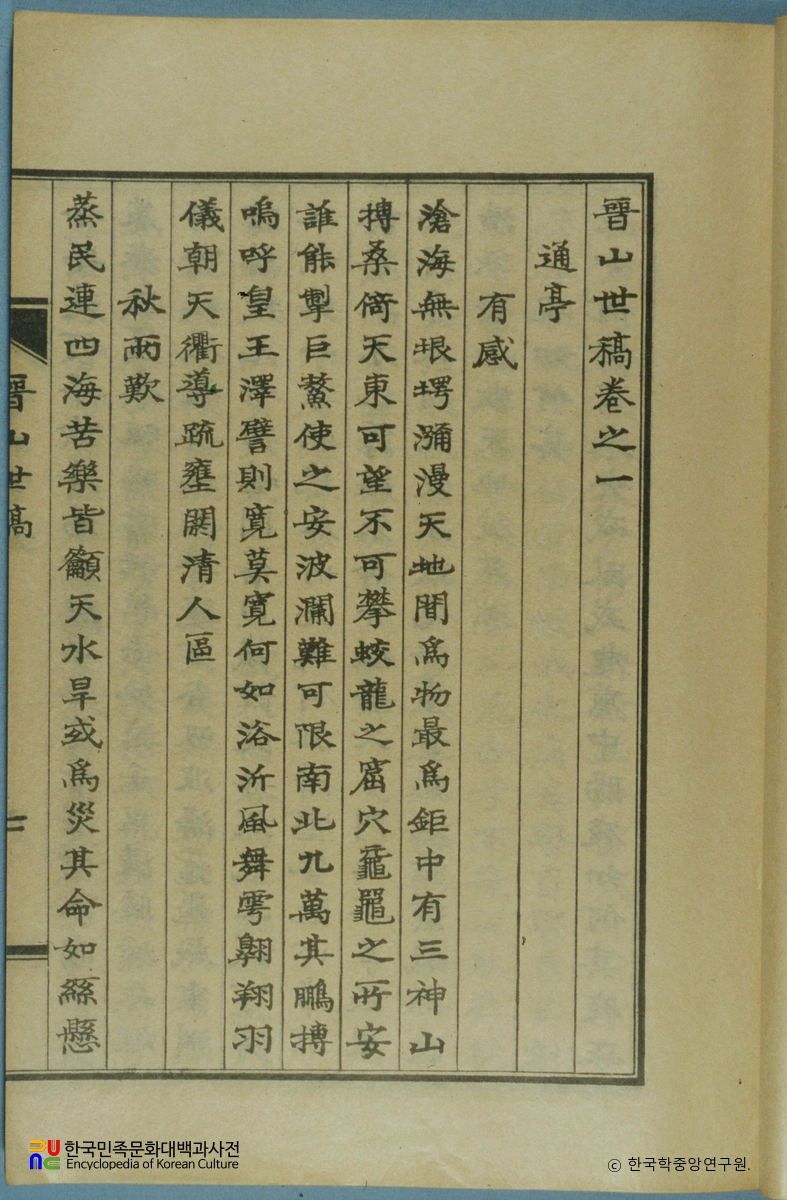 晋山世稿卷之一
通亭
有感
滄海無垠堮瀰漫天地間爲物最爲鉅中有三神山
搏桑倚天東可望不可攀蛟龍之窟穴黿鼉之所安
誰能掣巨鰲使之安波瀾難可限南北九萬其鵬搏
嗚呼皇王澤譬則寬莫寬何如浴沂風舞雩翱翔羽
儀朝天衢導疏壅閼清人區
秋雨歎
蒸民連四海苦樂皆籲天水旱或爲災其命如絲懸
晋山世稿
한국민족문화대백과사전
Encyclopedia of Korean Culture
© 한국학중앙연구원.